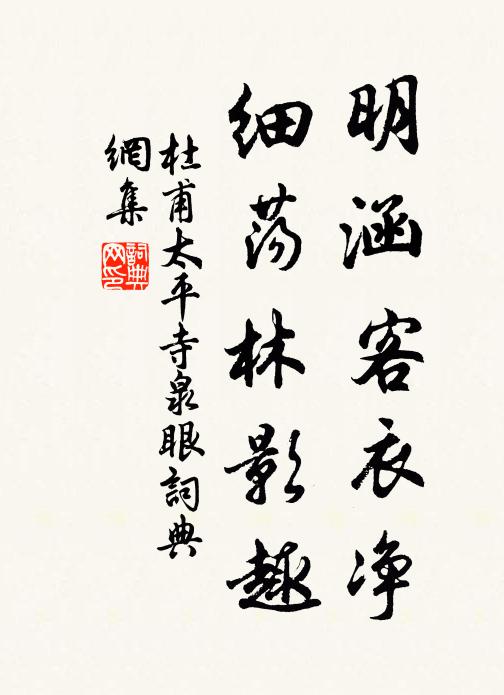 明涵客衣净
细荡林影趣
杜甫太平寺泉眼詞典
網集
詞典
网印